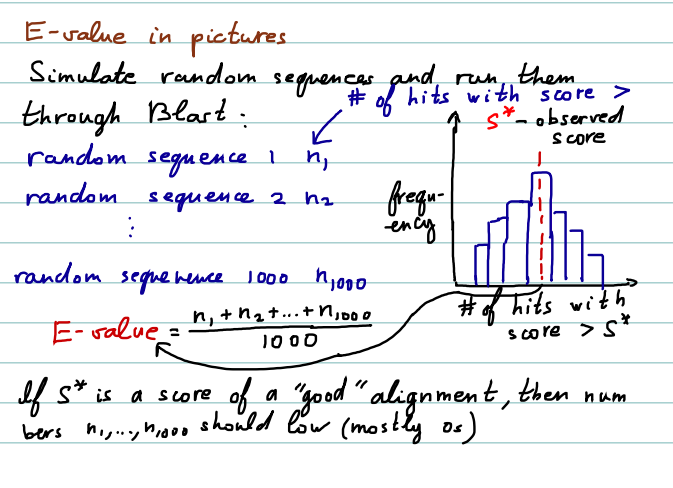 E-value in pictures
Simulate random sequences and run them
through Blast:
# of hits with score >
S* - observed
score
random sequence 1 n₁
random sequence 2 n₂
⋮
random sequehence 1000 n₁₀₀₀
frequ-
-ency
# of hits with
score > S*
E-value = n₁ + n₂ + ... + n₁₀₀₀ / 1000
If S* is a score of a "good" alignment, then num
bers n₁,...,n₁₀₀₀ should low (mostly 0s)